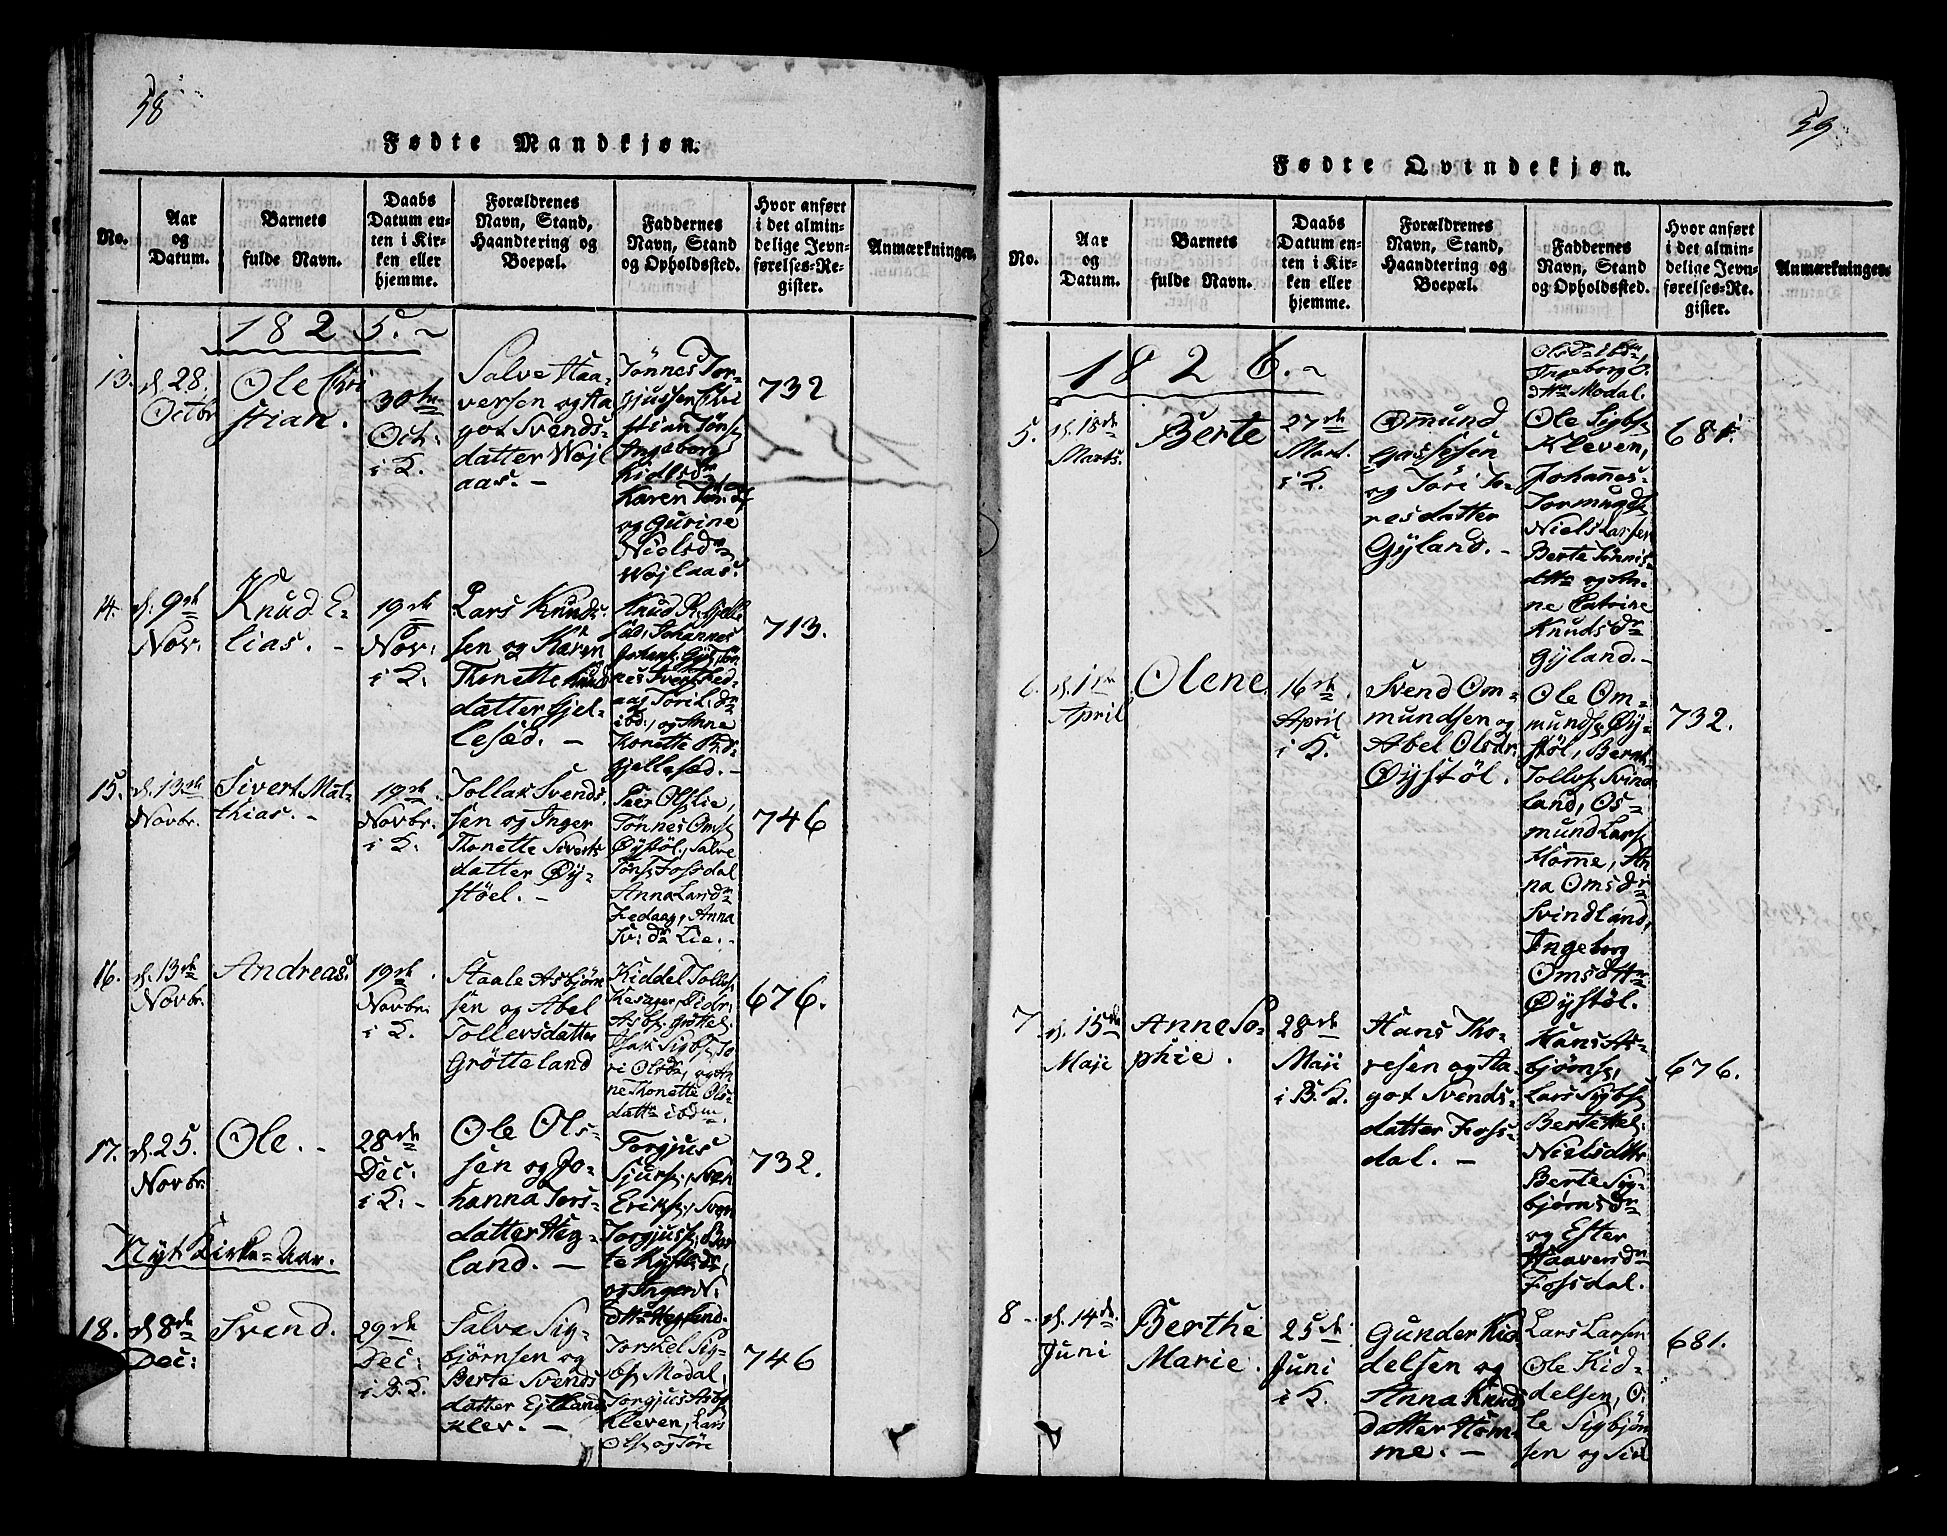 58
Fødte Mandkjøn.
No.
Aar
og
Datum.
Barnets
fulde Navn.
Daabs
Datum en-
ten i Kir-
ken eller
hjemme.
Forældrenes
Navn, Stand,
Haandtering og
Boepæl.
Faddernes
Navn, Stand
og Opholdssted.
Hvor anført
i det almin-
delige Jevn-
førelses-Re-
gister.
Anmærkninger.
1825.
13.
d. 28.
Octbr
Ole Chri
stian.
30te
Oct:
i K.
Salve Haa-
versen og Aa
got Svends-
datter Wøjl
aas. -
Tønnes Tor-
gjussen, Chri
stian Tøns.
Ingeborg
Karen
og Gurine
Nielsdr
Wøjlaas.
732
14.
d. 9de
Nov:
Knud E-
lias. -
19de
Nov:
i K.
Lars Knuds-
sen og Karen
Thonette Knuds
datter Gjel-
lesæd. -
Johannes
ibd:, og Anne
Tonette
Gjellesæd. -
713.
15.
d. 13de
Novbr.
Sivert Mat-
thias. -
19de
Novbr.
i K.
Tollak Svends
sen og Inger
Thonette Siverts
datter Øy-
støel. -
Peer Olss Lie,
Tønnes Oms.
Øystøl, Salve
Tøns. Fossdal
Anna Larsdr
Fedaag, Anna
Sv: dr Lie. -
746
16.
d. 13de
Novbr.
Andreas.
19de
Novbr.
i K.
Staale Asbjørn
sen og Abel
Tollevsdatter
Grøtteland
Kiddel Tollefs.
ri Olsdr, og An-
ne Thonette Ols-
datter ibdm.
676.
17.
d. 25.
Novbr:
Ole. -
28de
Dec:
i K. -
Ole Ols-
sen og Jo-
hanna Tors-
datter Heg-
land. -
Torgjus
Sjurs., Sven
Eriks., Sven
Torgjuss., Ber
te
og Inger N:
dttr Hegland.
732.
Nyt Kirke-Aar.
18.
d. 8de
Dec:
Svend.
29de
Dec:
i B.K.
Salve Sig-
bjørnsen og
Berte Svends
datter Ejthands
klev. -
Torkel Sig-
bs. Modal,
Torgjus Asbs.
Kleven, Lars
Ols. og Tøre
746
59
Fødte Qvindekjøn.
No.
Aar
og
Datum.
Barnets
fulde Navn.
Daabs
Datum en-
ten i Kir-
ken eller
hjemme.
Forældrenes
Navn, Stand,
Haandtering og
Boepæl.
Faddernes
Navn, Stand
og Opholdssted.
Hvor anført
i det almin-
delige Jevn-
førelses-Re-
gister.
Anmærkninger.
1826.
Olsdr ibdm,
Ingeborg O.
dttr Modal.
5.
d. 18de
Marts.
Berte
27de
Mart.
i K.
Omund
Gussesen
og Tøri To-
resdatter
Gyland. -
Ole Sigbs.
Kleven,
Johannes
Tormunds.
Niels Larsen
Berte Tønnis-
dttr og An-
ne Catrine
Knudsdr
Gyland. -
681.
6.
d. 1ste
April
Olene
16de
April
i K.
Svend Om-
mundsen og
Abel Olsdr.
Øystøl.
Ole Om-
munds. Øy-
støl, Bernt
Tollefs. Svind
land, Os-
mund Lars.
Homme, An
na Omsdr
Svindland,
Ingeborg
Omsdttr
Øystøl.
732.
7
d. 15de
Maji
Anne So-
phie.
28de
Maji
i B.K.
Hans Tho-
resen og Aa-
got Svends-
datter Foss-
dal. -
Hans As-
bjørns.,
Lars Sigbs.
Berte
Nielsdttr
Berte Sig-
bjørnsdr
og Ester
Haaversdr
Fossdal.
676.
8 -
d. 14de.
Juni
Berthe
Marie.
25de
Juni
i K.
Gunder Kid
delsen og
Anna Knuds
datter Hom-
me. -
Lars Larsen
Ole Kid-
delsen, O-
le Sigbjørn
sen og Siel
681.